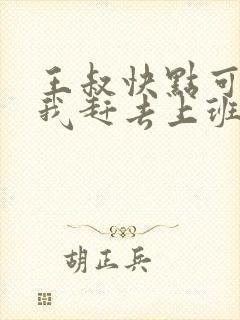 王叔快點可
我赶去上班
胡正兵